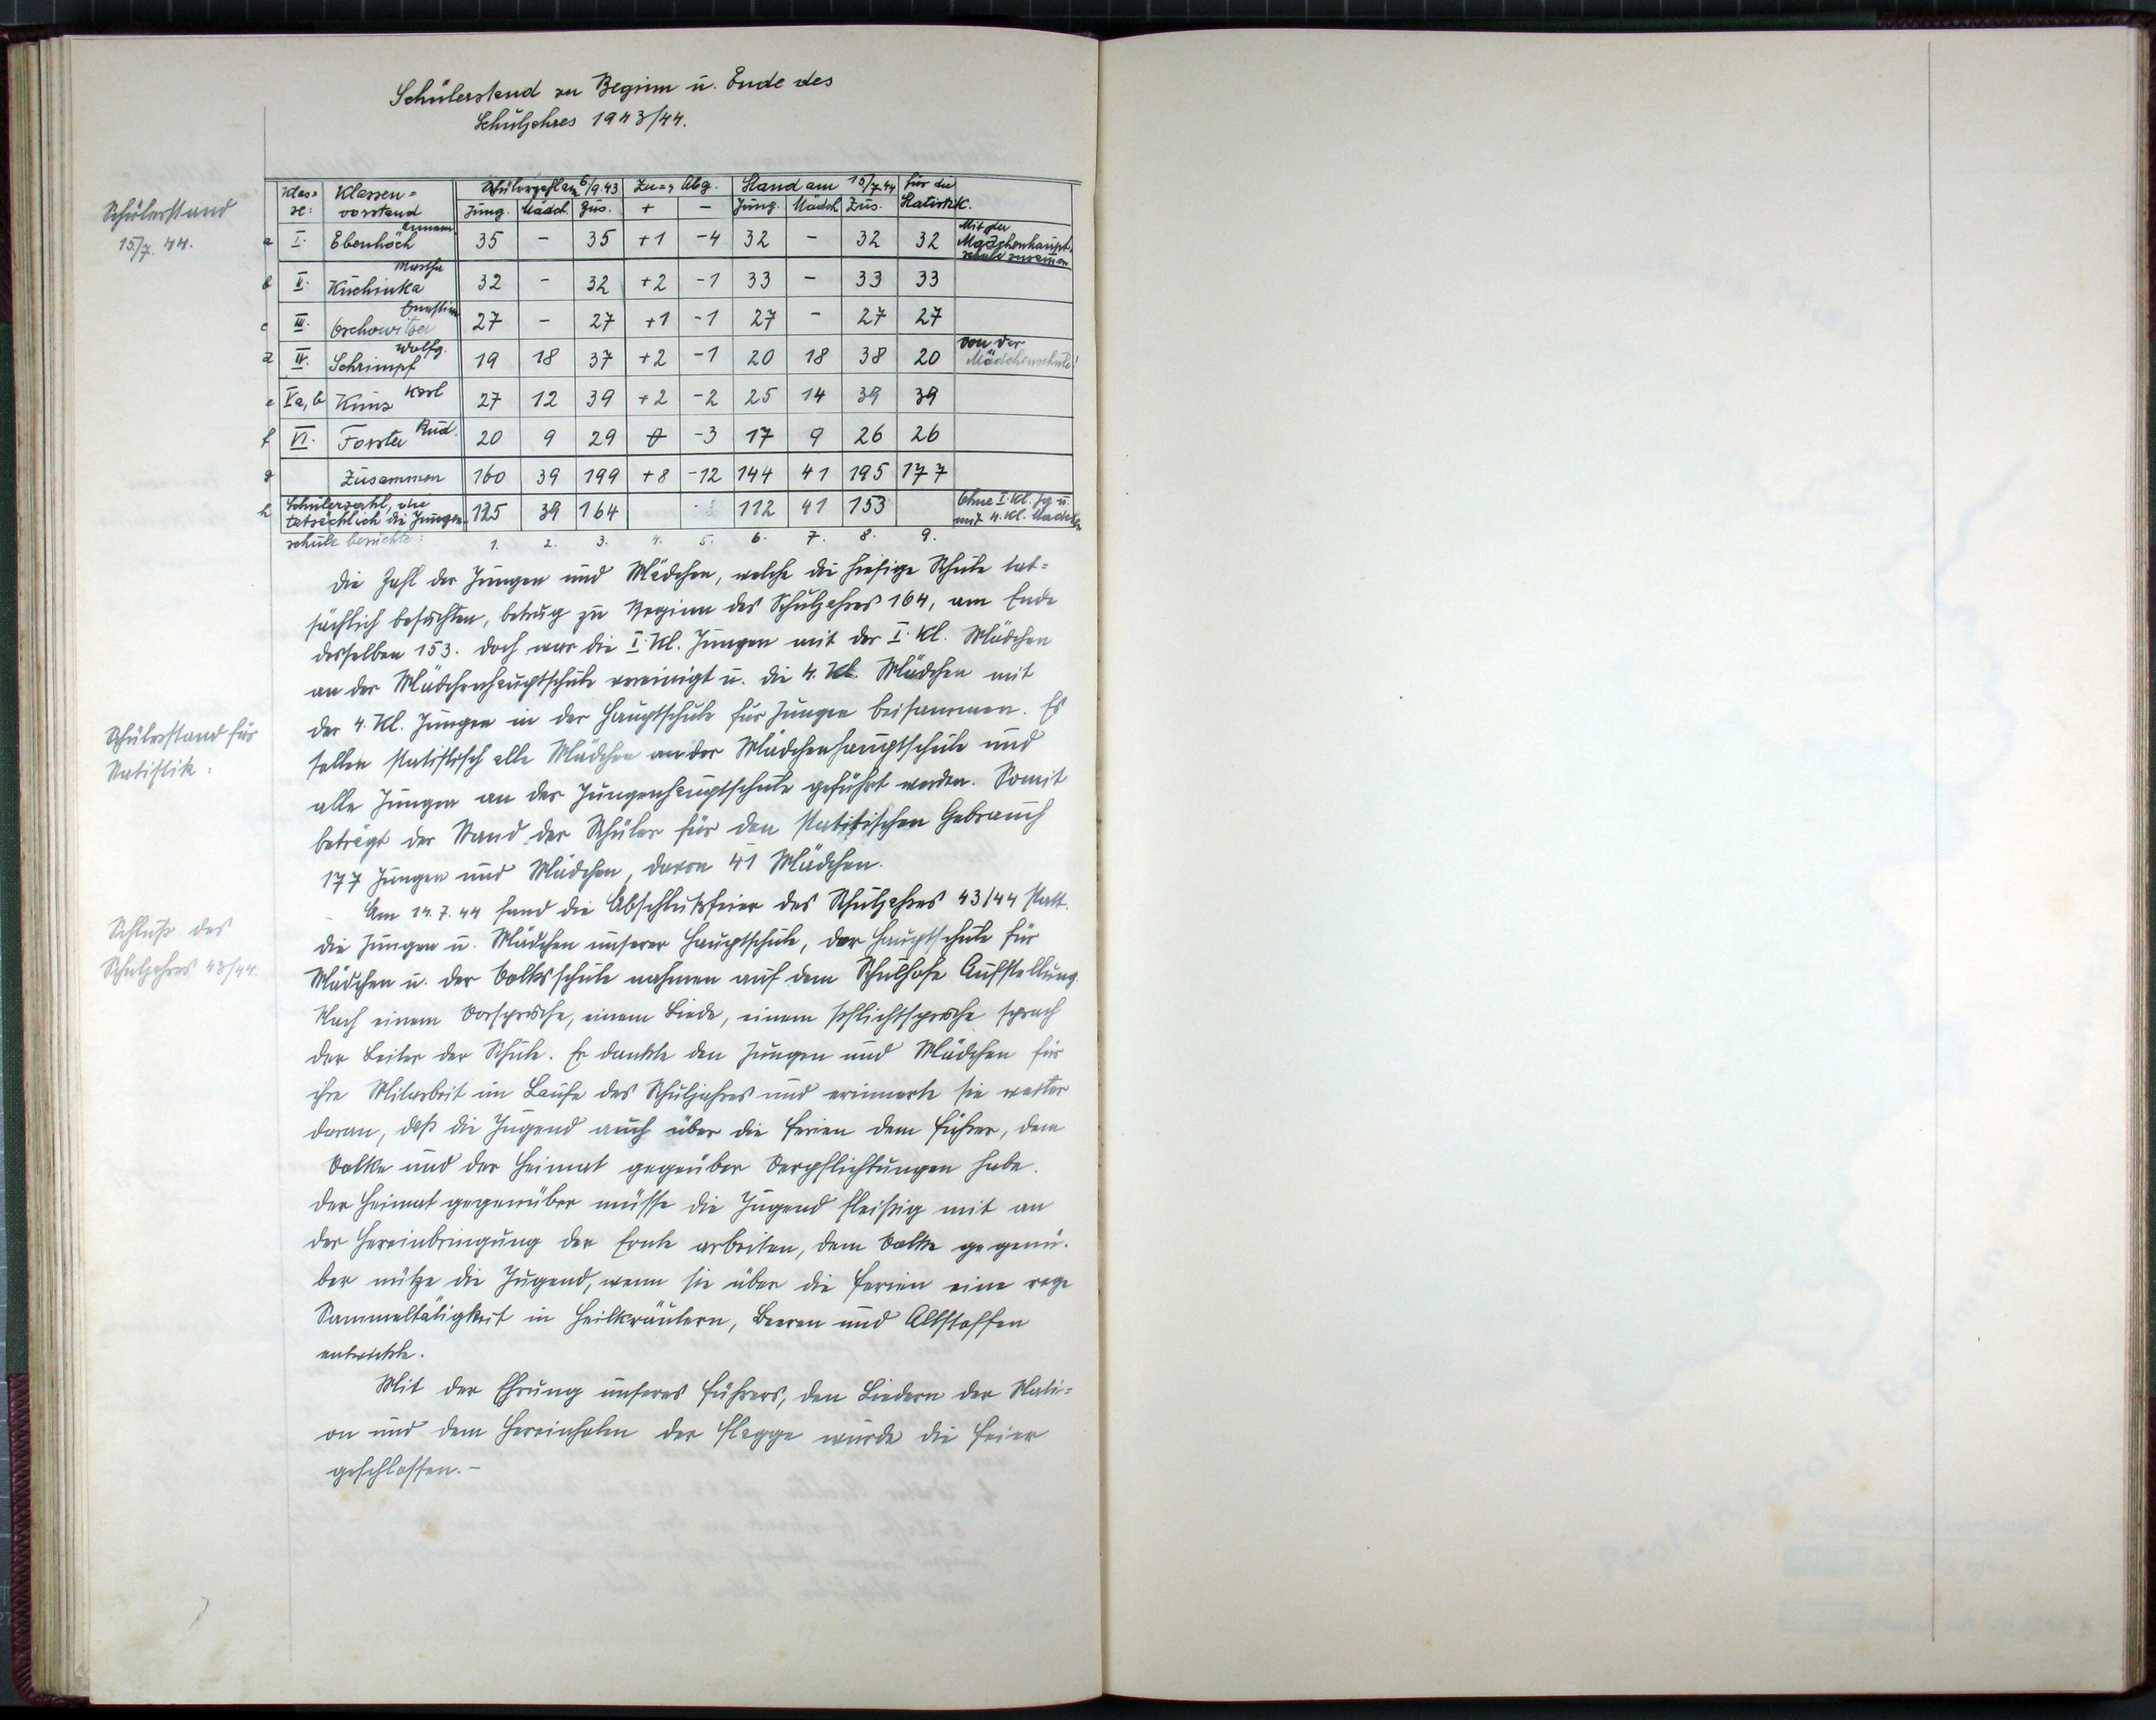 Schülerstand zu Beginn u. Ende des
Schuljahres 1943/44.
Schülerstand
15/7. 44.
Klas= Klassen= Schülerzahl am 6/9.43 Zu= , Abg. Stand am 15/7.44 für die
se: vorstand Jung. Mädch. Zus. + - Jung. Mädch Zus. Statistik.
a I. Ebenhöch 35 - 35 +1 -4 32 - 32 32 Mit der Mädchenhaupt- schule zusammen
b II. Kuchinka Martha 32 - 32 +2 -1 33 - 33 33
c III. 27 - 27 +1 -1 27 - 27 27
d IV. Schrimpf Wolfg. 19 18 37 +2 -1 20 18 38 20 von der Mädchenschule!
e Va,b Kunz Karl 27 12 39 +2 -2 25 14 39 39
f VI. Forster Rud. 20 9 29 0 -3 17 9 26 26
g Zusammen 160 39 199 +8 -12 144 41 195 177
h Schülerzahl, die tatsächlich die Jungen- 125 39 164 112 41 153 Ohne I. Kl. Jg u. mit 4. Kl. Mädchen
schule besuchte: 1. 2. 3. 4. 5. 6. 7. 8. 9.
Die Zahl der Jungen und Mädchen, welche die hiesige Schule tat=
sächlich besuchten, betrug zu Beginn des Schuljahres 164, am Ende
desselben 153. Doch war die I. Kl. Jungen mit der I. Kl. Mädchen
an der Mädchenhauptschule vereinigt u. die 4. Kl. Mädchen mit
der 4. Kl. Jungen in der Hauptschule für Jungen beisammen. Es
Schülerstand für
Statistik:
sollen statistisch alle Mädchen an der Mädchenhauptschule und
alle Jungen an der Jungenhauptschule geführt werden. Somit
beträgt der Stand der Schüler für den statistischen Gebrauch
177 Jungen und Mädchen, davon 41 Mädchen.
Am 14.7.44 fand die Abschlußfeier des Schuljahres 43/44 statt.
Schluß des
Schuljahres 43/44.
Die Jungen u. Mädchen unserer Hauptschule, der Hauptschule für
Mädchen u. der Volksschule nahmen auf dem Schulhofe Aufstellung.
Nach einem Vorspruche, einem Liede, einem Pflichtspruche sprach
der Leiter der Schule. Er dankte den Jungen und Mädchen für
ihre Mitarbeit im Laufe des Schuljahres und erinnerte sie weiter
daran, daß die Jugend auch über die Ferien dem Führer, dem
Volke und der Heimat gegenüber Verpflichtungen habe.
Der Heimat gegenüber müsse die Jugend fleißig mit an
der Hereinbringung der Ernte arbeiten, dem Volke gegenü-
ber nütze die Jugend, wenn sie über die Ferien eine rege
Sammeltätigkeit in Heilkräutern, Beeren und Altstoffen
entwickle.
Mit der Ehrung unseres Führers, den Liedern der Nati=
on und dem Hereinholen der Flagge wurde die Feier
geschlossen.-